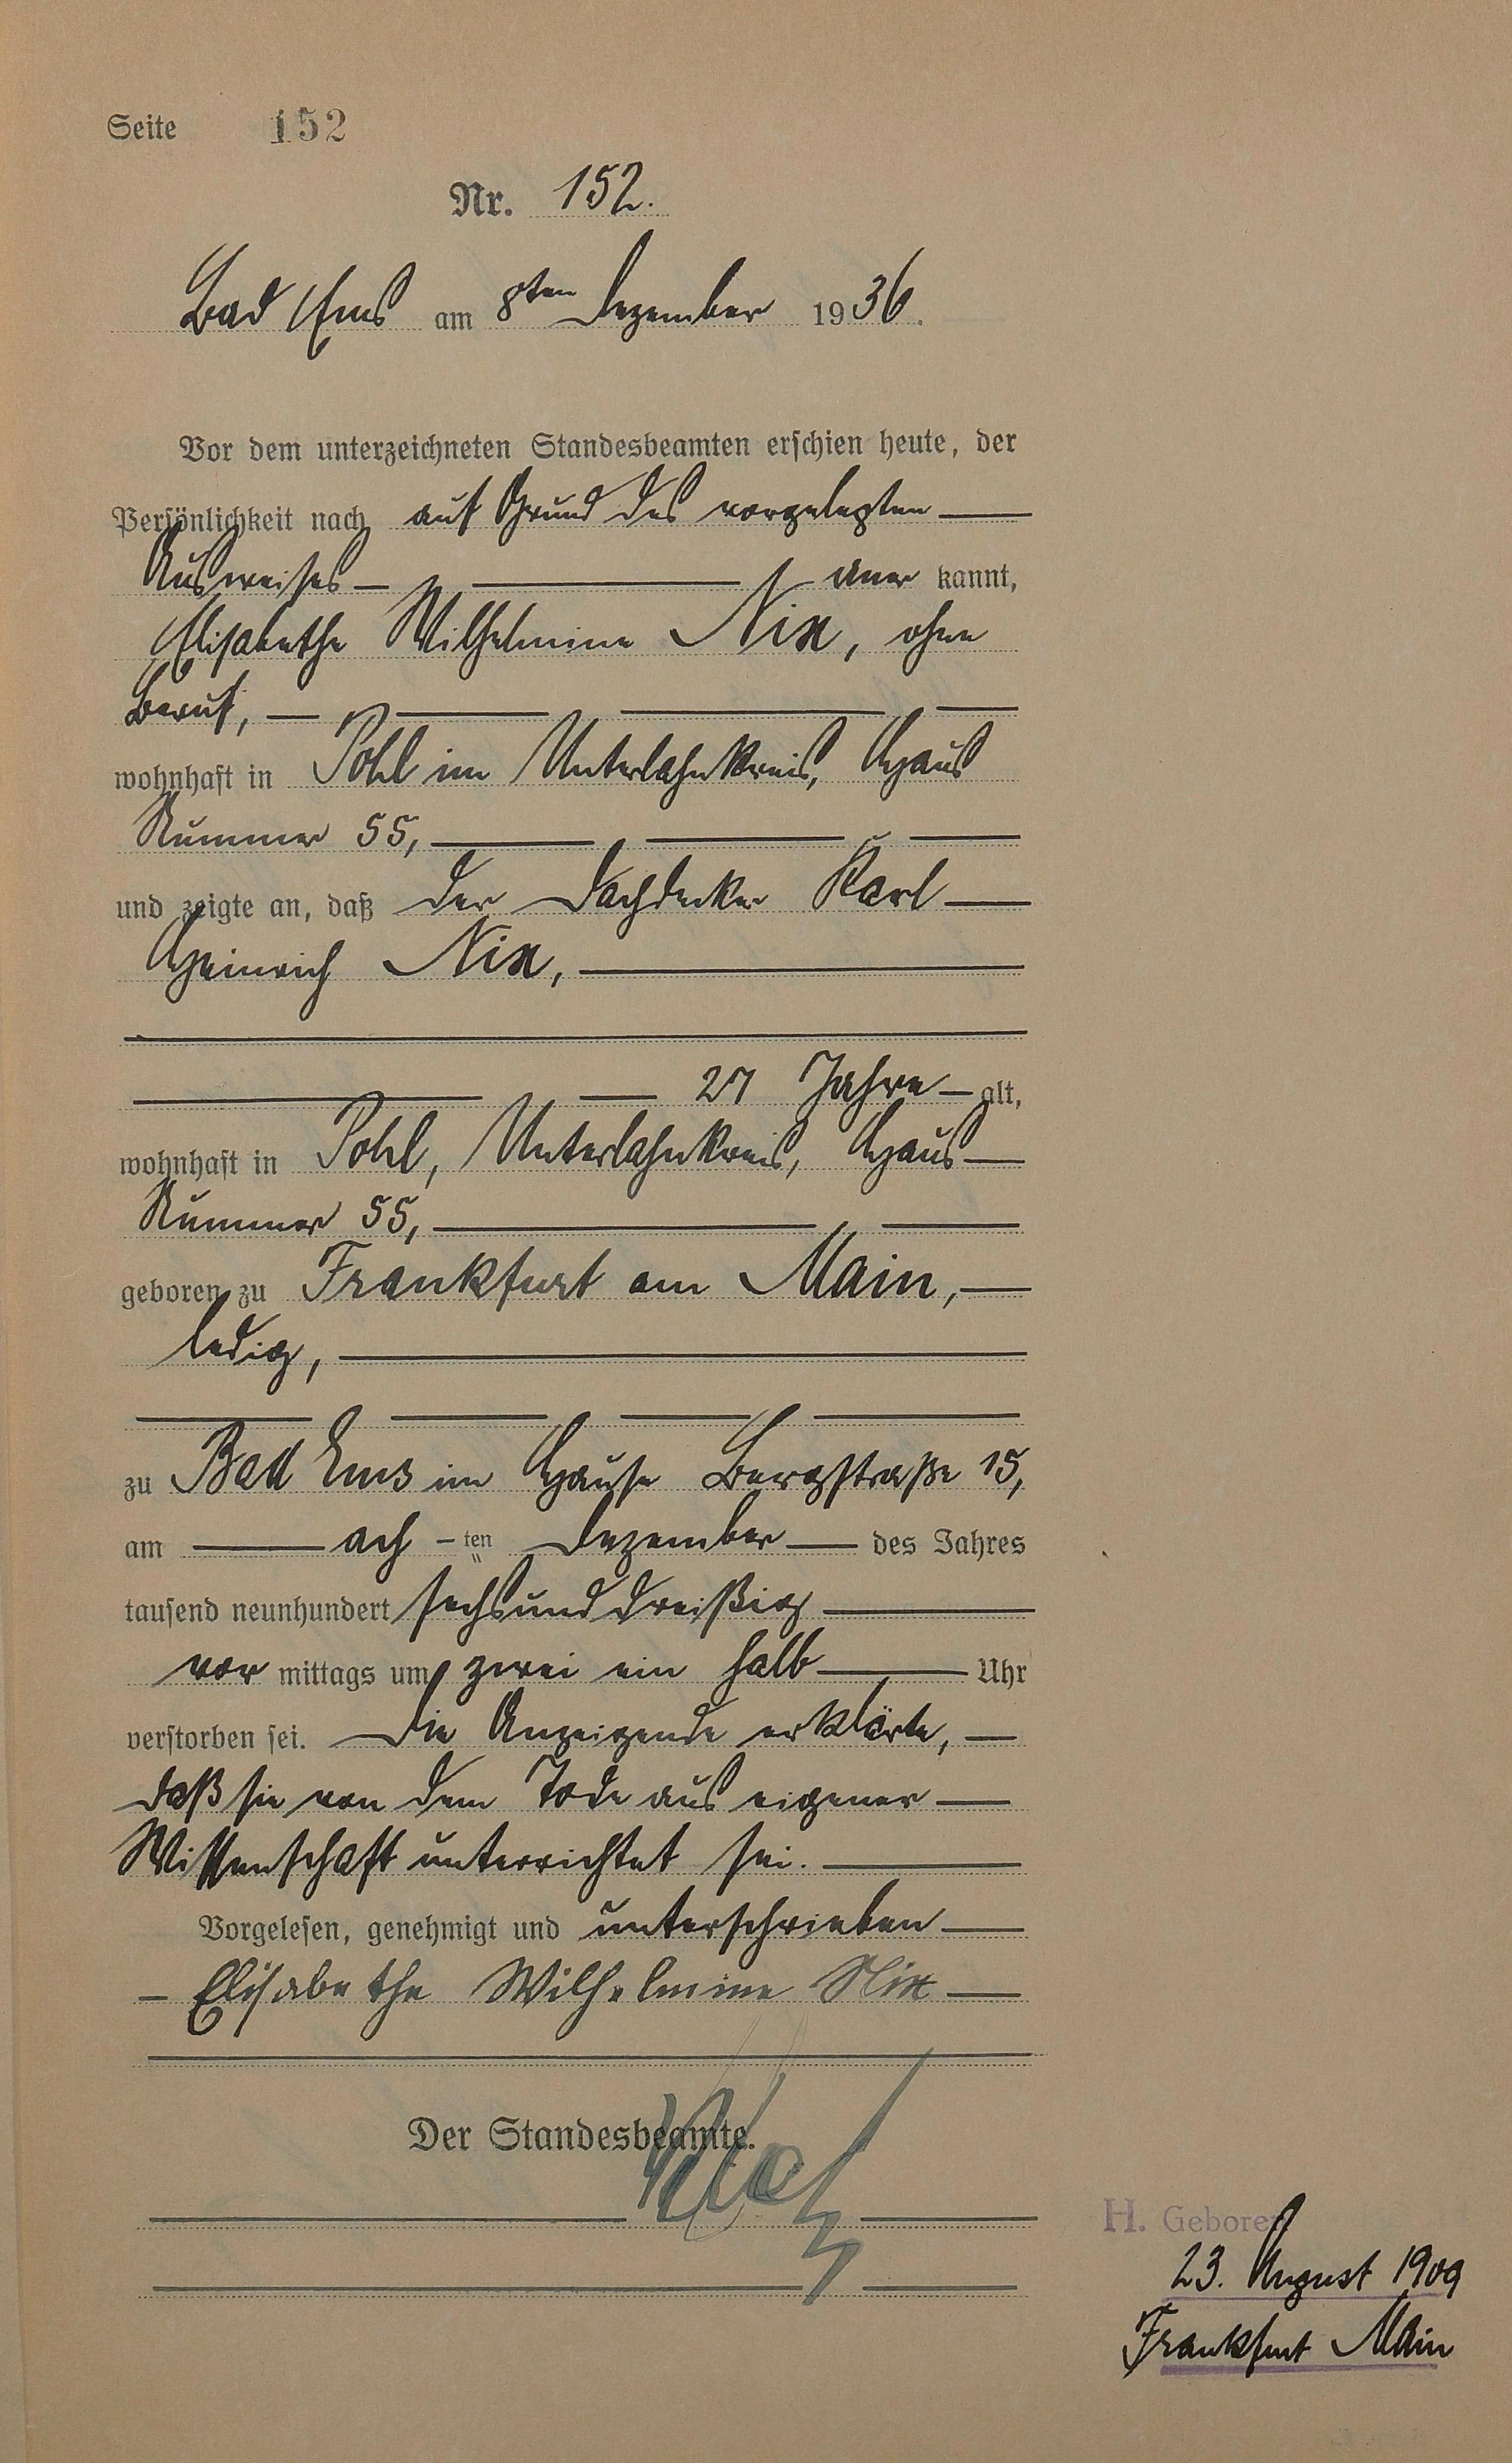 Seite 152
Nr. 152.
Bad Ems am 8ten Dezember 1936.
Vor dem unterzeichneten Standesbeamten erschien heute, der
Persönlichkeit nach auf Grund des vorgelegten
Ausweises aner kannt,
Elisabethe Wilhelmine Nix, ohne
Beruf,
wohnhaft in Pohl im Unterlahnkreis, Haus
Nummer 55,
und zeigte an, daß der Dachdecker Karl
Heinrich Nix,
27 Jahre alt,
wohnhaft in Pohl, Unterlahnkreis, Haus
Nummer 55,
geboren zu Frankfurt am Main,
ledig,
zu Bad Ems im Hause Bergstraße 15,
am ach ten Dezember des Jahres
tausend neunhundert sechsunddreißig
vor mittags um zwei ein halb Uhr
verstorben sei. Die Anzeigende erklärte,
daß sie von dem Tode aus eigener
Wissenschaft unterrichtet sei.
Vorgelesen, genehmigt und unterschrieben
Elisabethe Wilhelmine Nix
Der Standesbeamte.
H. Geboren
23. August 1909
Frankfurt Main